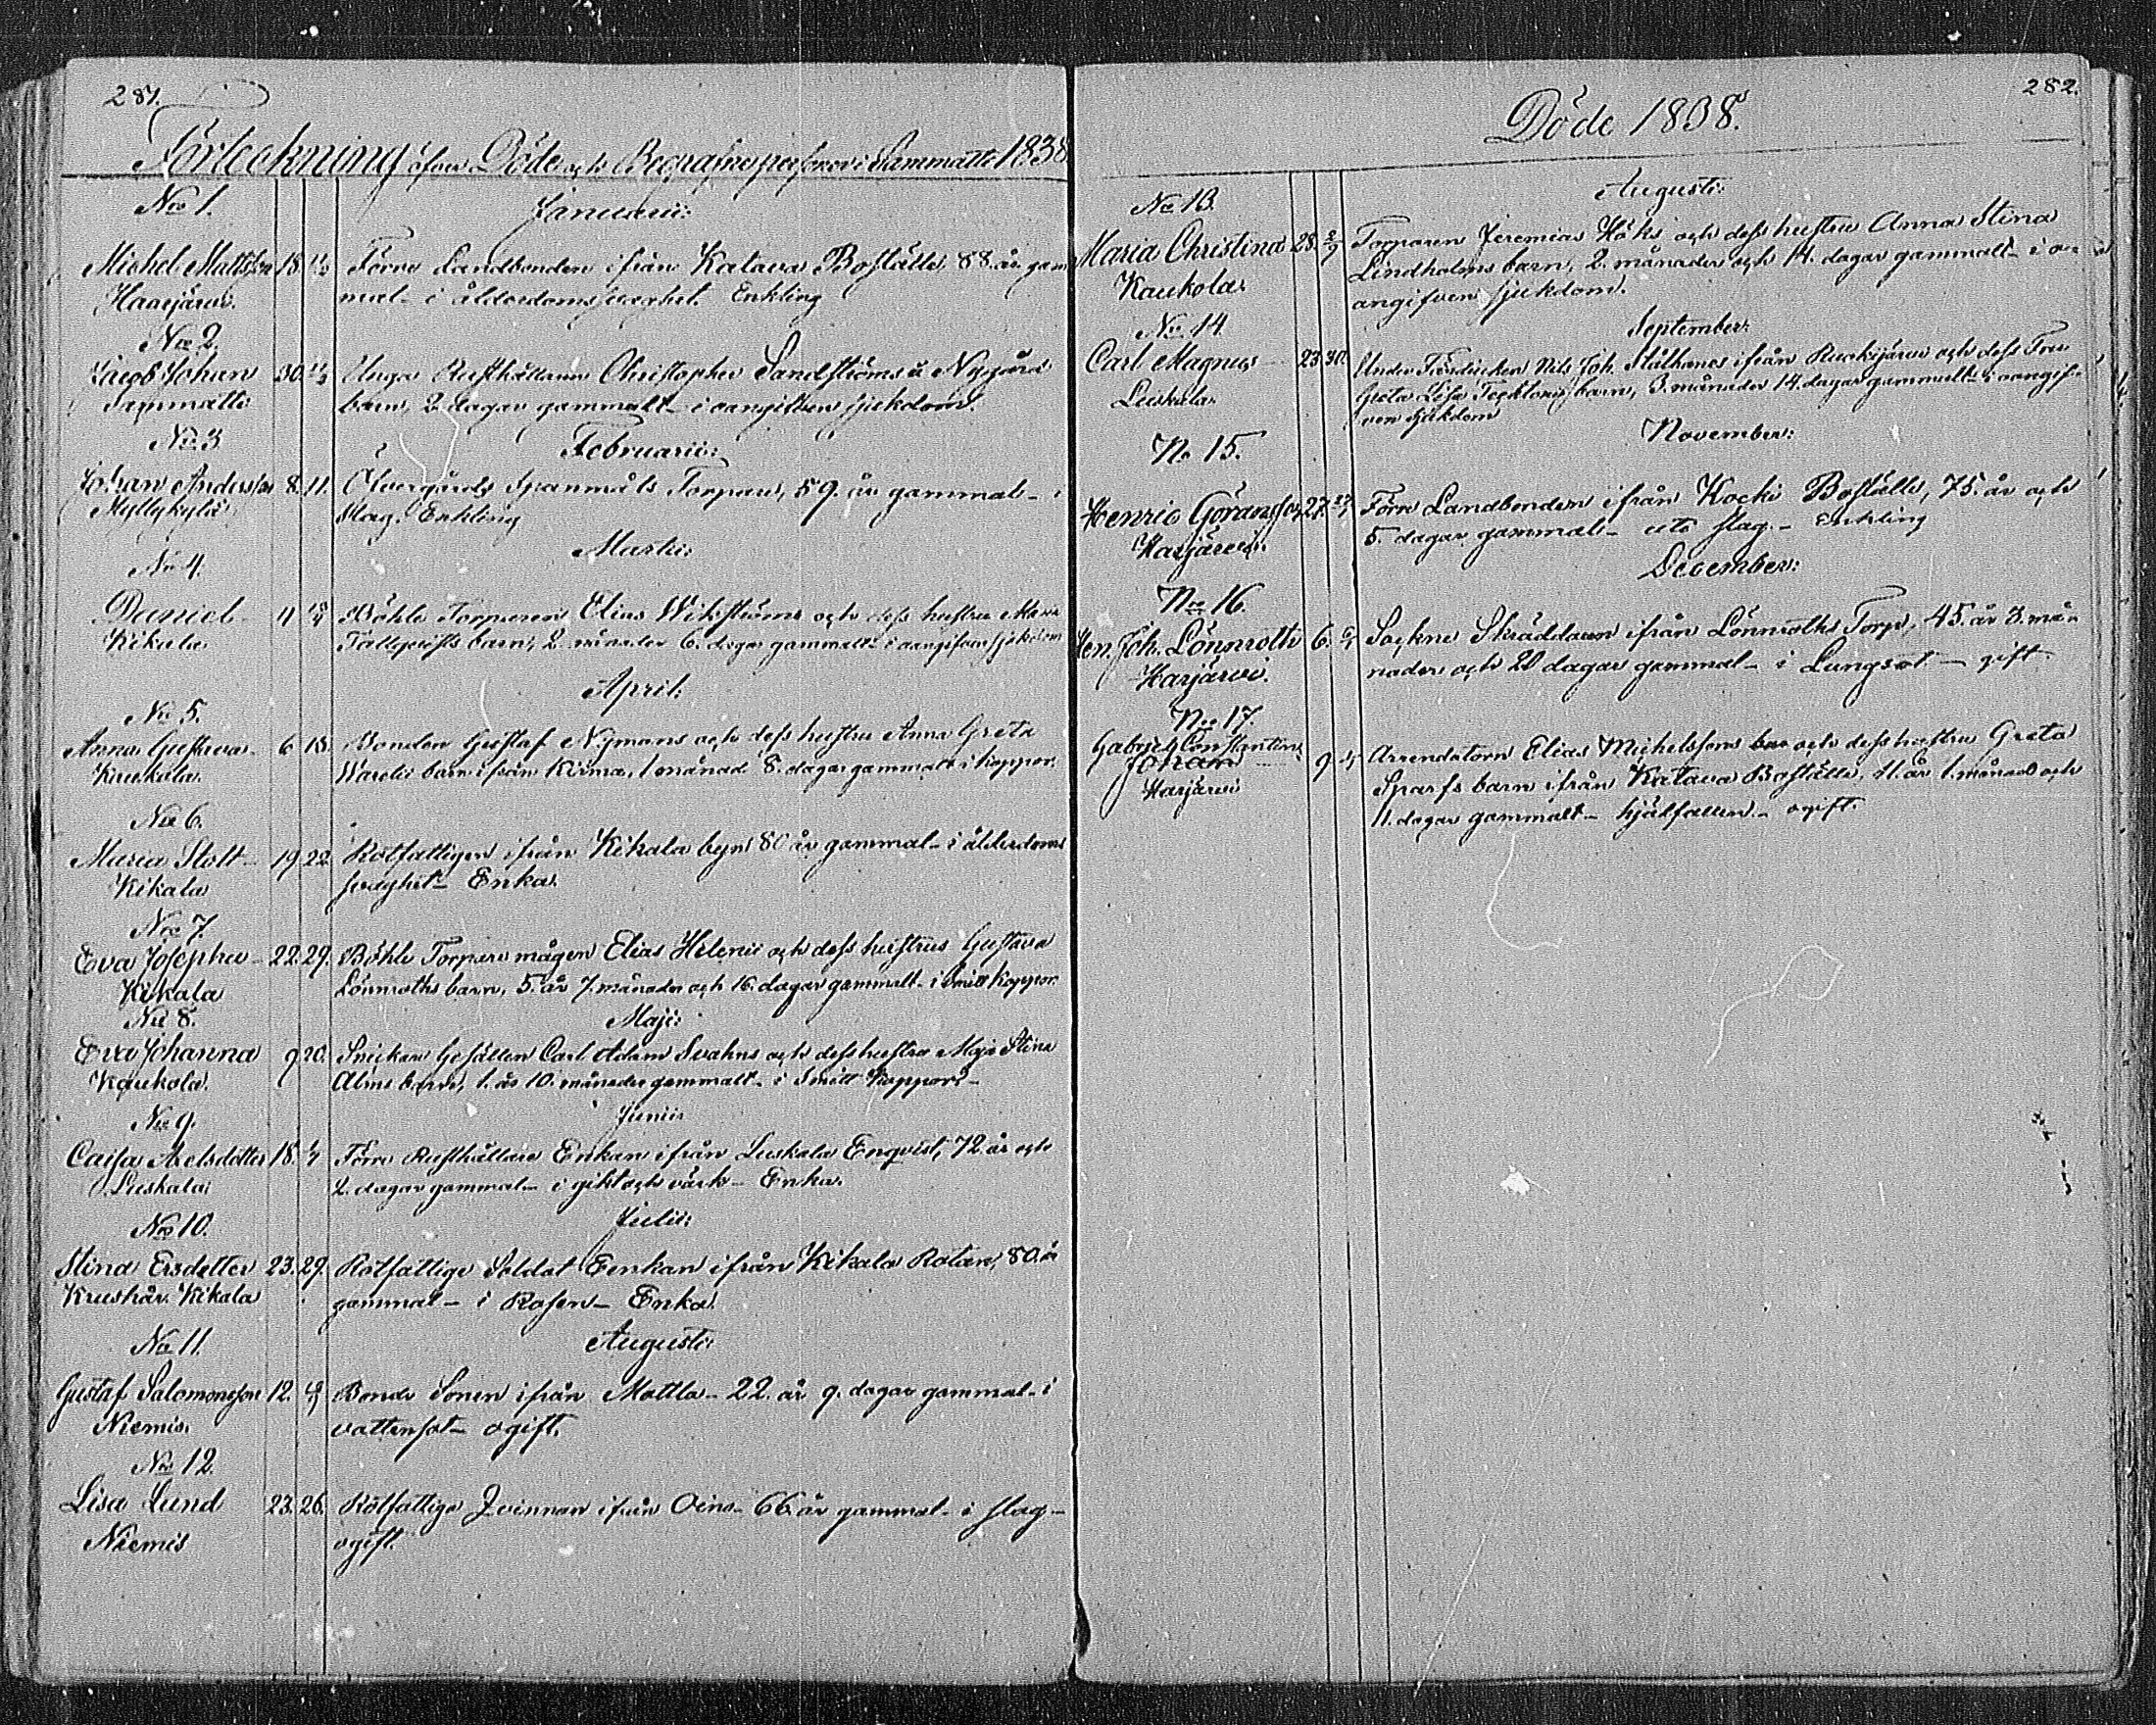 281.
Förteckning öfver Döde och Begrafne personer i Sammatti 1838
No 1.
Januarii:
Michel Mattsson 18. Förre Landbonden ifrån Katava Boställe 88. år gam
Haarjärvi. mal - i ålderdoms svaghet. Enkling
No 2.
Jacob Johan 30. Unga Rusthållaren Christopher Sandströms å Nygård
Sammatti barn, 2 dagar gammalt - i oangifven sjukdom.
No 3
Februarii:
Johan Andersson 8. 11. Öfvergårds Spanmåls Torpare, 59. år gammal - i
Myllykylä slag. Enkling
Martii:
No 4.
Daniel 11 Böhle Torparen Elias Wikströms och dess hustru
Kikala. Tallqvists barn, 2 månader 6. dagar gammalt - i oangifven sjukdom
April:
No 5.
Anna Gustava 6 13. Bonden Gustaf Nymans och dess hustru Anna Greta
barn ifrån Kirma, 1 månad 8. dagar gammalt i koppor.
No 6.
Maria Stolt - 19 22. Rotfattigen ifrån Kikala byn 80 år gammal - i ålderdoms
Kikala svaghet - Enka.
No 7
Eva Josepha - 22. 29. Böhle Torpare mågen Elias Helenii och dess hustrus Gustava
Kikala Lönnroths barn, 5. år 7. månader och 16. dagar gammalt - i Smitt koppor
No 8.
Maji:
Eva Johanna 9 20. Snickare Gesällen Carl Adam Svahns och dess hustru Maja Stina
Kaukola. Alms barn, 1. år 10. månader gammalt - i Smitt Koppor -
Junii:
No 9.
Caisa Axelsdotter 18. Förre Rusthållare Enkan ifrån Luskala Enqvist, 72 år och
Luskala 2. dagar gammal - i gikt och värk - Enka.
No 10.
Julii:
Stina Ersdotter 23. 29. Rotfattige Soldat Eenkan ifrån Kikala Rotan, 80. år
Krushår. Kikala gammal - i Rosen - Enka.
No 11.
Augusti:
Gustaf Salomonsson 12. Bonde Sonen ifrån Mottla - 22. år 9. dagar gammal - i
Niemis. vattensot - ogift.
No 12.
Lisa Lund 23. 26. Rotfattige Qvinnan ifrån Oino - 66. år gammal - i slag -
Niemis ogift.
282.
Döde 1838.
No 13.
Augusti:
Maria Christina 28. Torparen Jeremias Höks och dess hustru Anna Stina
Lindholms barn, 2. månader och 14. dagar gammalt - i o-
Kaukola. angifven sjukdom.
No 14.
September:
Carl Magnus 23 30. Under Nils Joh. Stålhanes ifrån Ruokijärvi och dess Fru
Luskala. Greta Lisa barn, 3. månader 14. dagar gammalt - i oangif-
ven sjukdom
November:
No 15.
Henric Göransson 27. Förre Landbonden ifrån Kocki Boställe, 75. år och
Harjärvi. 5. dagar gammal - uti slag. - Enkling
December:
No 16.
Hen. Joh. Lönnroth 6. Sockne Skräddaren ifrån Lönnroths Torp, 45. år 3. må-
Harjärvi. nader och 20 dagar gammal - i Lungsot - gift.
No 17.
Gabriel Constantin
Johan 9 Arrendatorn Elias Michelssons och dess hustru Greta
Harjärvi Sparfs barn ifrån Katava Boställe, 11. år 1. månad och
11. dagar gammalt - hjälfallen - ogift.